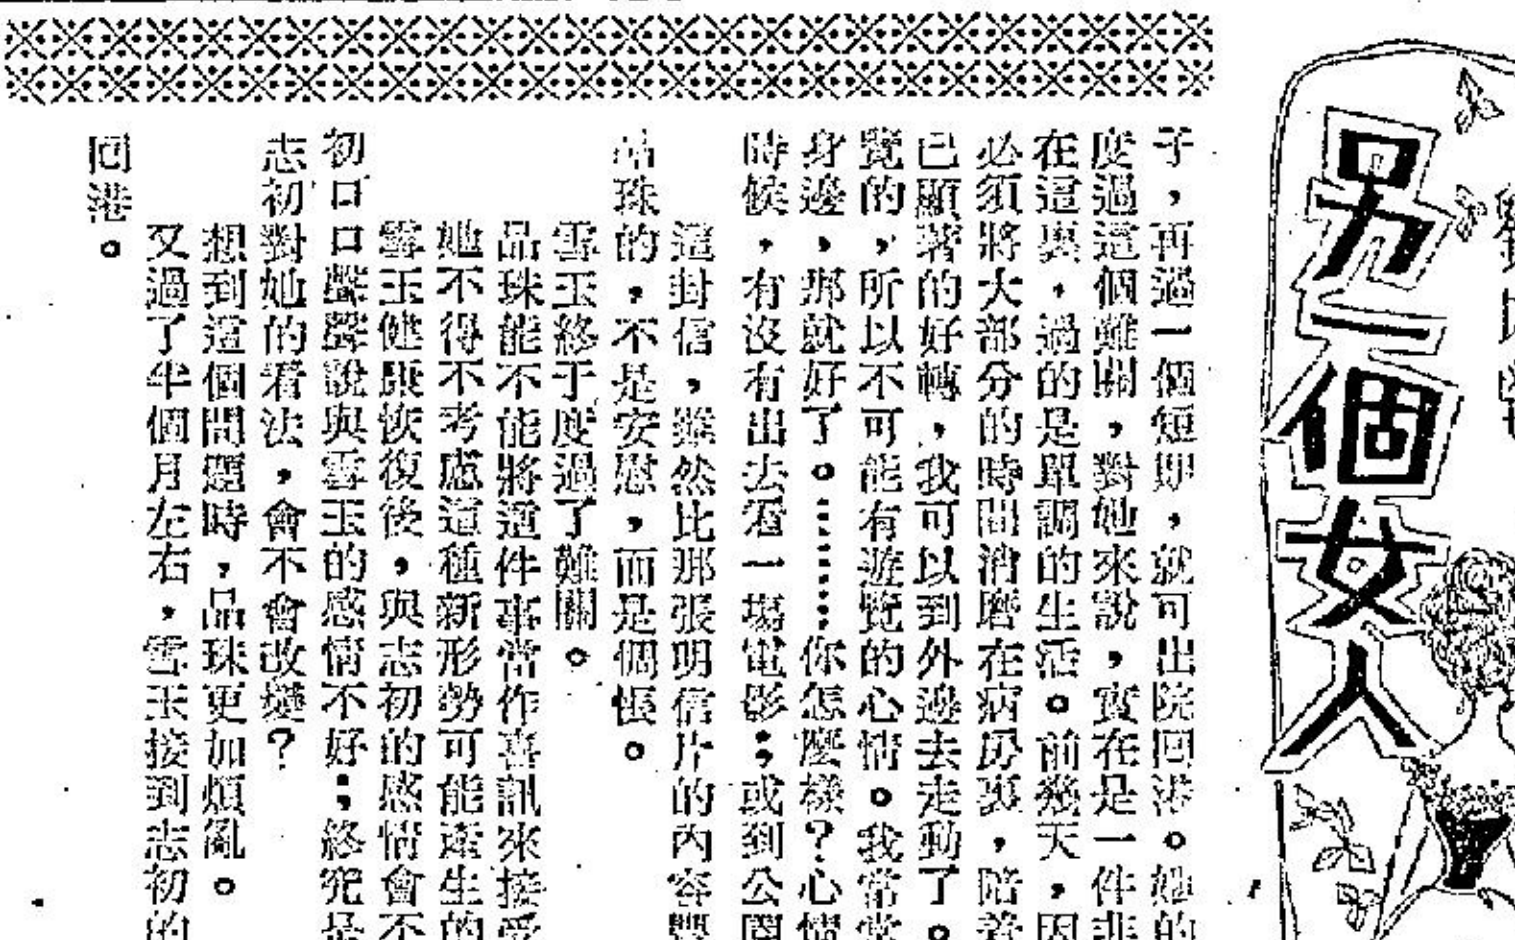 另一個女人
子，再過一個短期，就可出院回港。她的
度過這個難關，對她來說，實在是一件非
在這裏，過的是單調的生活。前幾天，因
必須將大部分的時間消磨在病房裏，陪着
已顯著的好轉，我可以到外邊去走動了。
覽的，所以不可能有遊覽的心情。我常常
身邊，那就好了。………你怎麼樣？心情
時候，有沒有出去看一場電影；或到公園
這封信，雖然比那張明信片的內容豐
品珠的，不是安慰，而是惆悵。
雪玉終于度過了難關。
品珠能不能將這件事當作喜訊來接受
她不得不考慮這種新形勢可能產生的
雪玉健康恢復後，與志初的感情會不
初口口聲聲說與雪玉的感情不好；終究是
志初對她的看法，會不會改變？
想到這個問題時，品珠更加煩亂。
又過了半個月左右，雪玉接到志初的
回港。